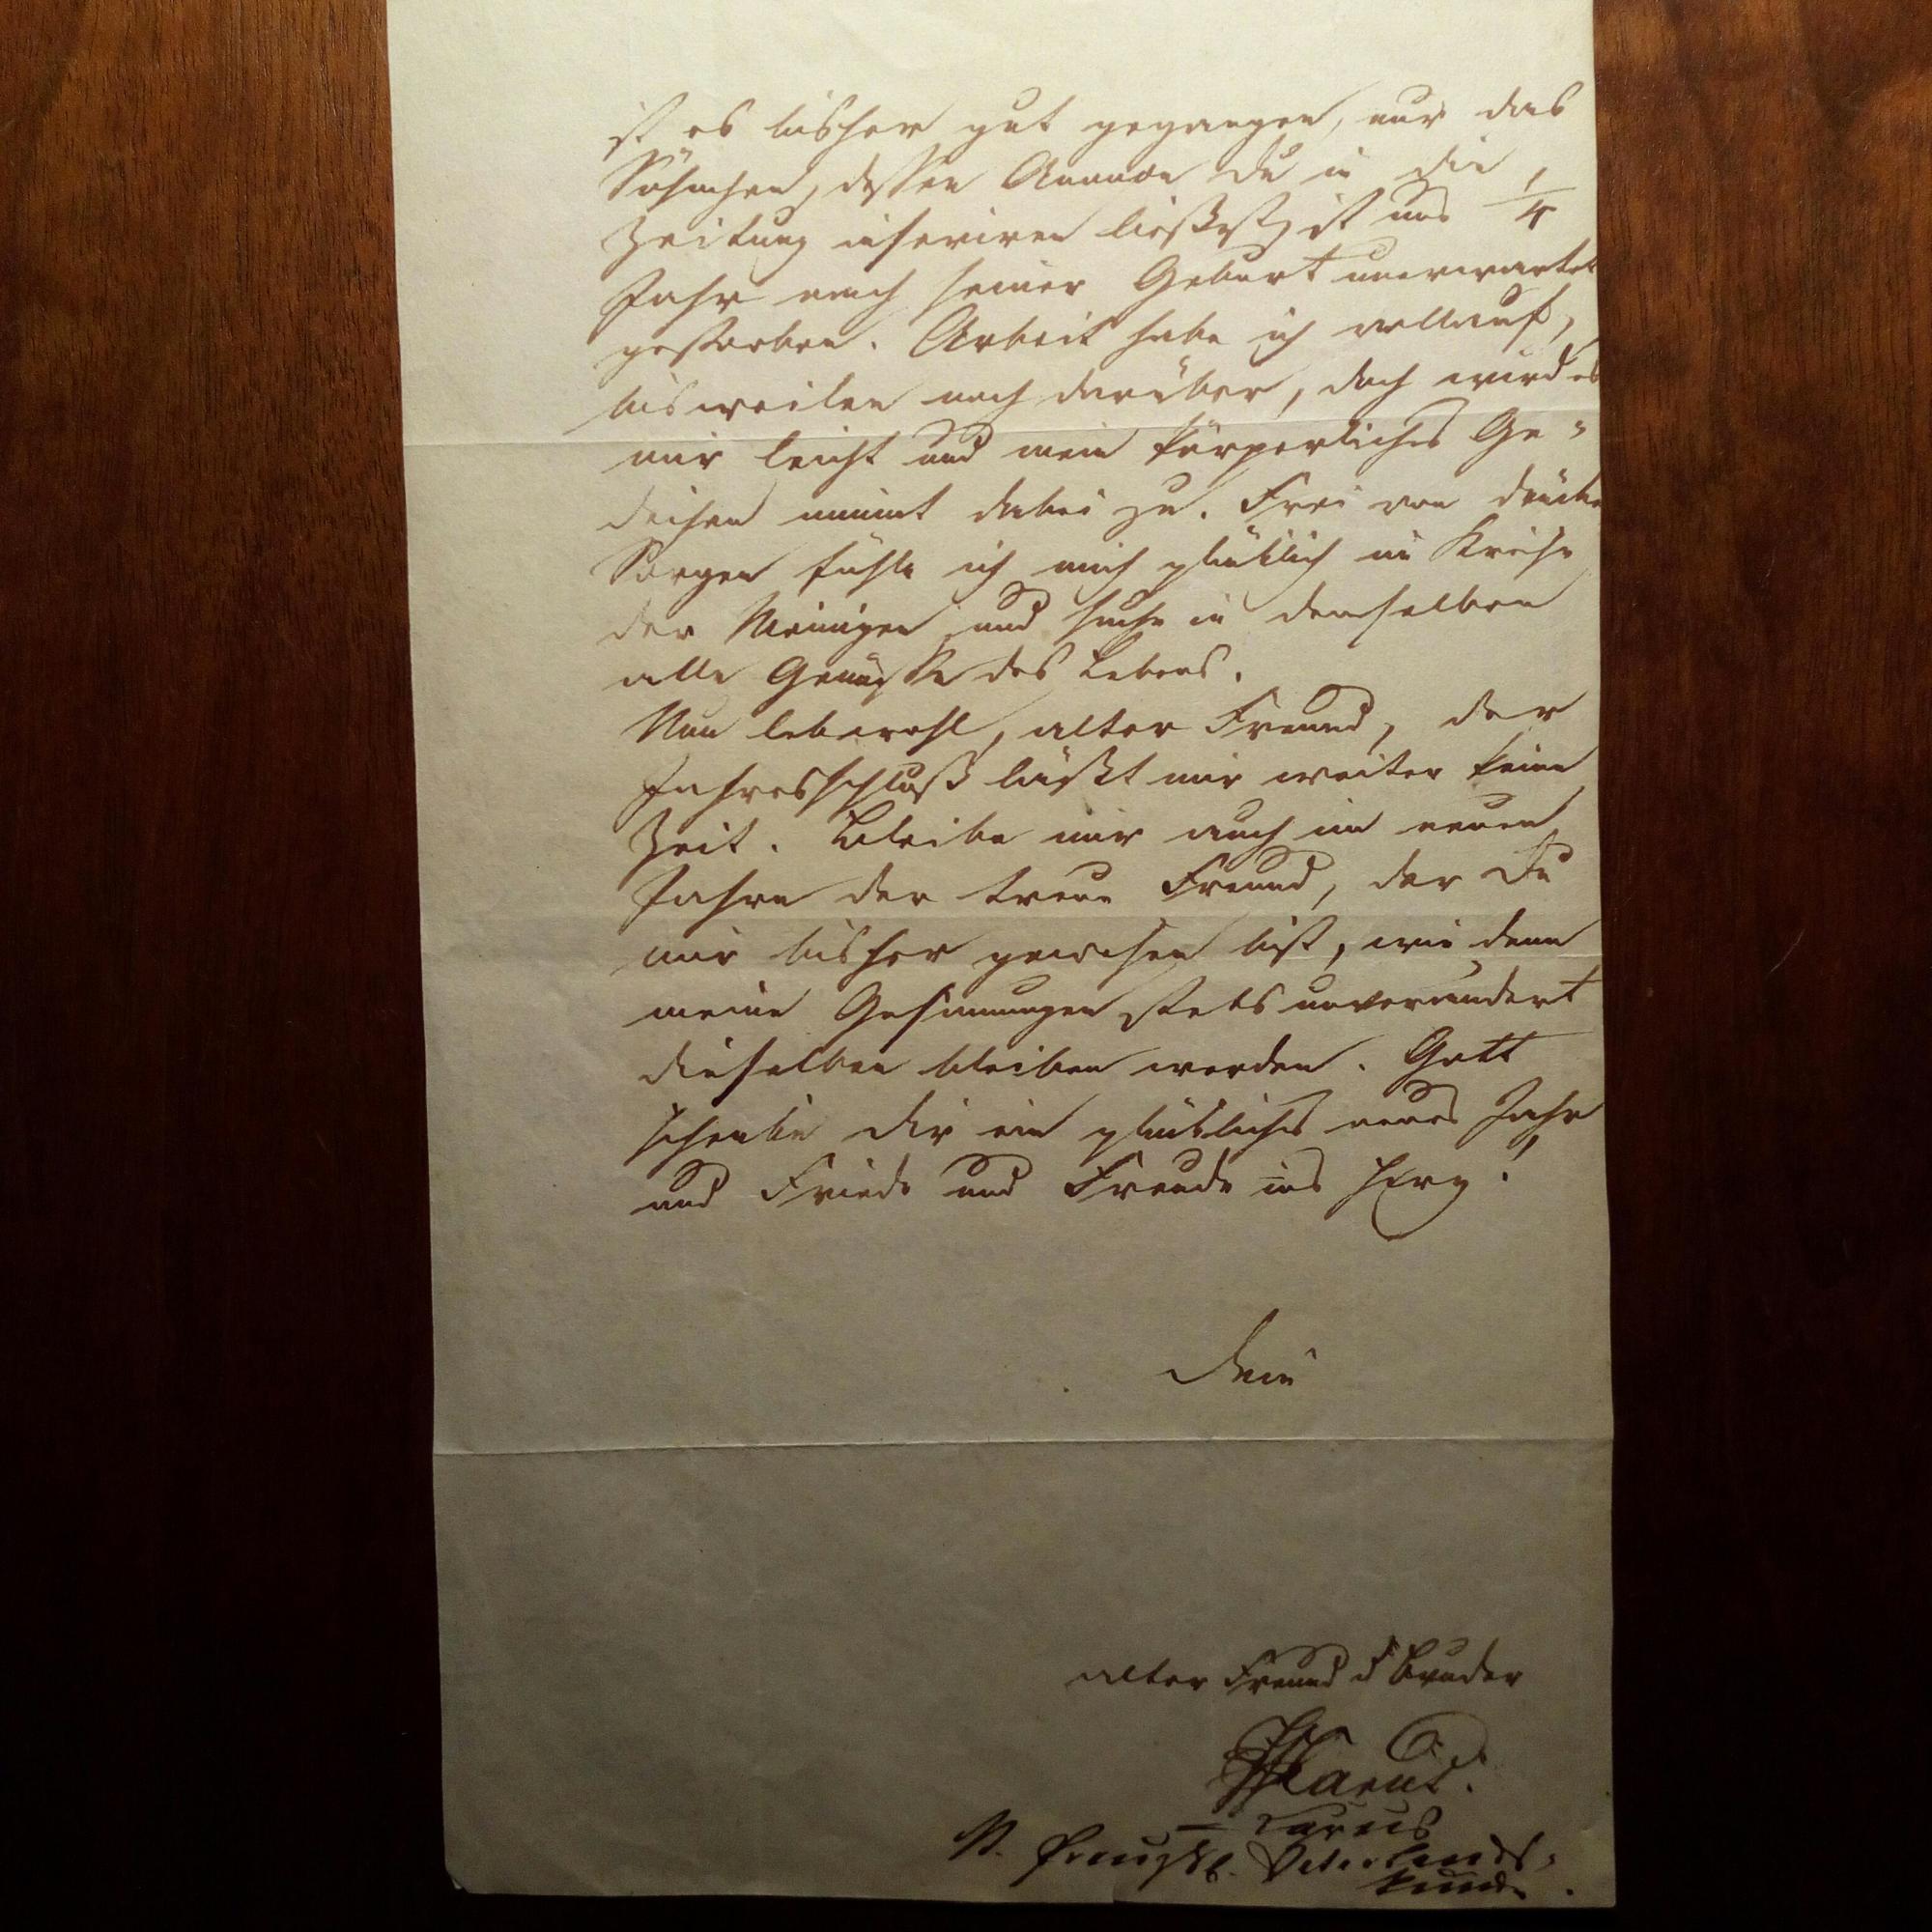 ist es bisher gut gegangen, nur das
Söhnchen, dessen Annonce Du in die
Zeitung inseriren ließest, ist uns 1/4
Jahr nach seiner Geburt unerwartet
gestorben. Arbeit habe ich vollauf,
bisweilen noch darüber, doch wird es
mir leicht und mein körperliches Ge-
deihen nimmt dabei zu. Frei von
Sorgen fühle ich mich glücklich im Kreise
der Meinigen und suche in demselben
alle Genüsse des Lebens.
Nun lebewohl, alter Freund, der
Jahresschluß läßt mir weiter keine
Zeit. Bleibe mir auch im neuen
Jahre der treue Freund, der Du
mir bisher gewesen bist, wie denn
meine Gesinnungen stets unverändert
dieselben bleiben werden. Gott
schenke Dir ein glückliches neues Jahr
und Friede und Freude ins Herz!
Dein
alter Freund u Bruder